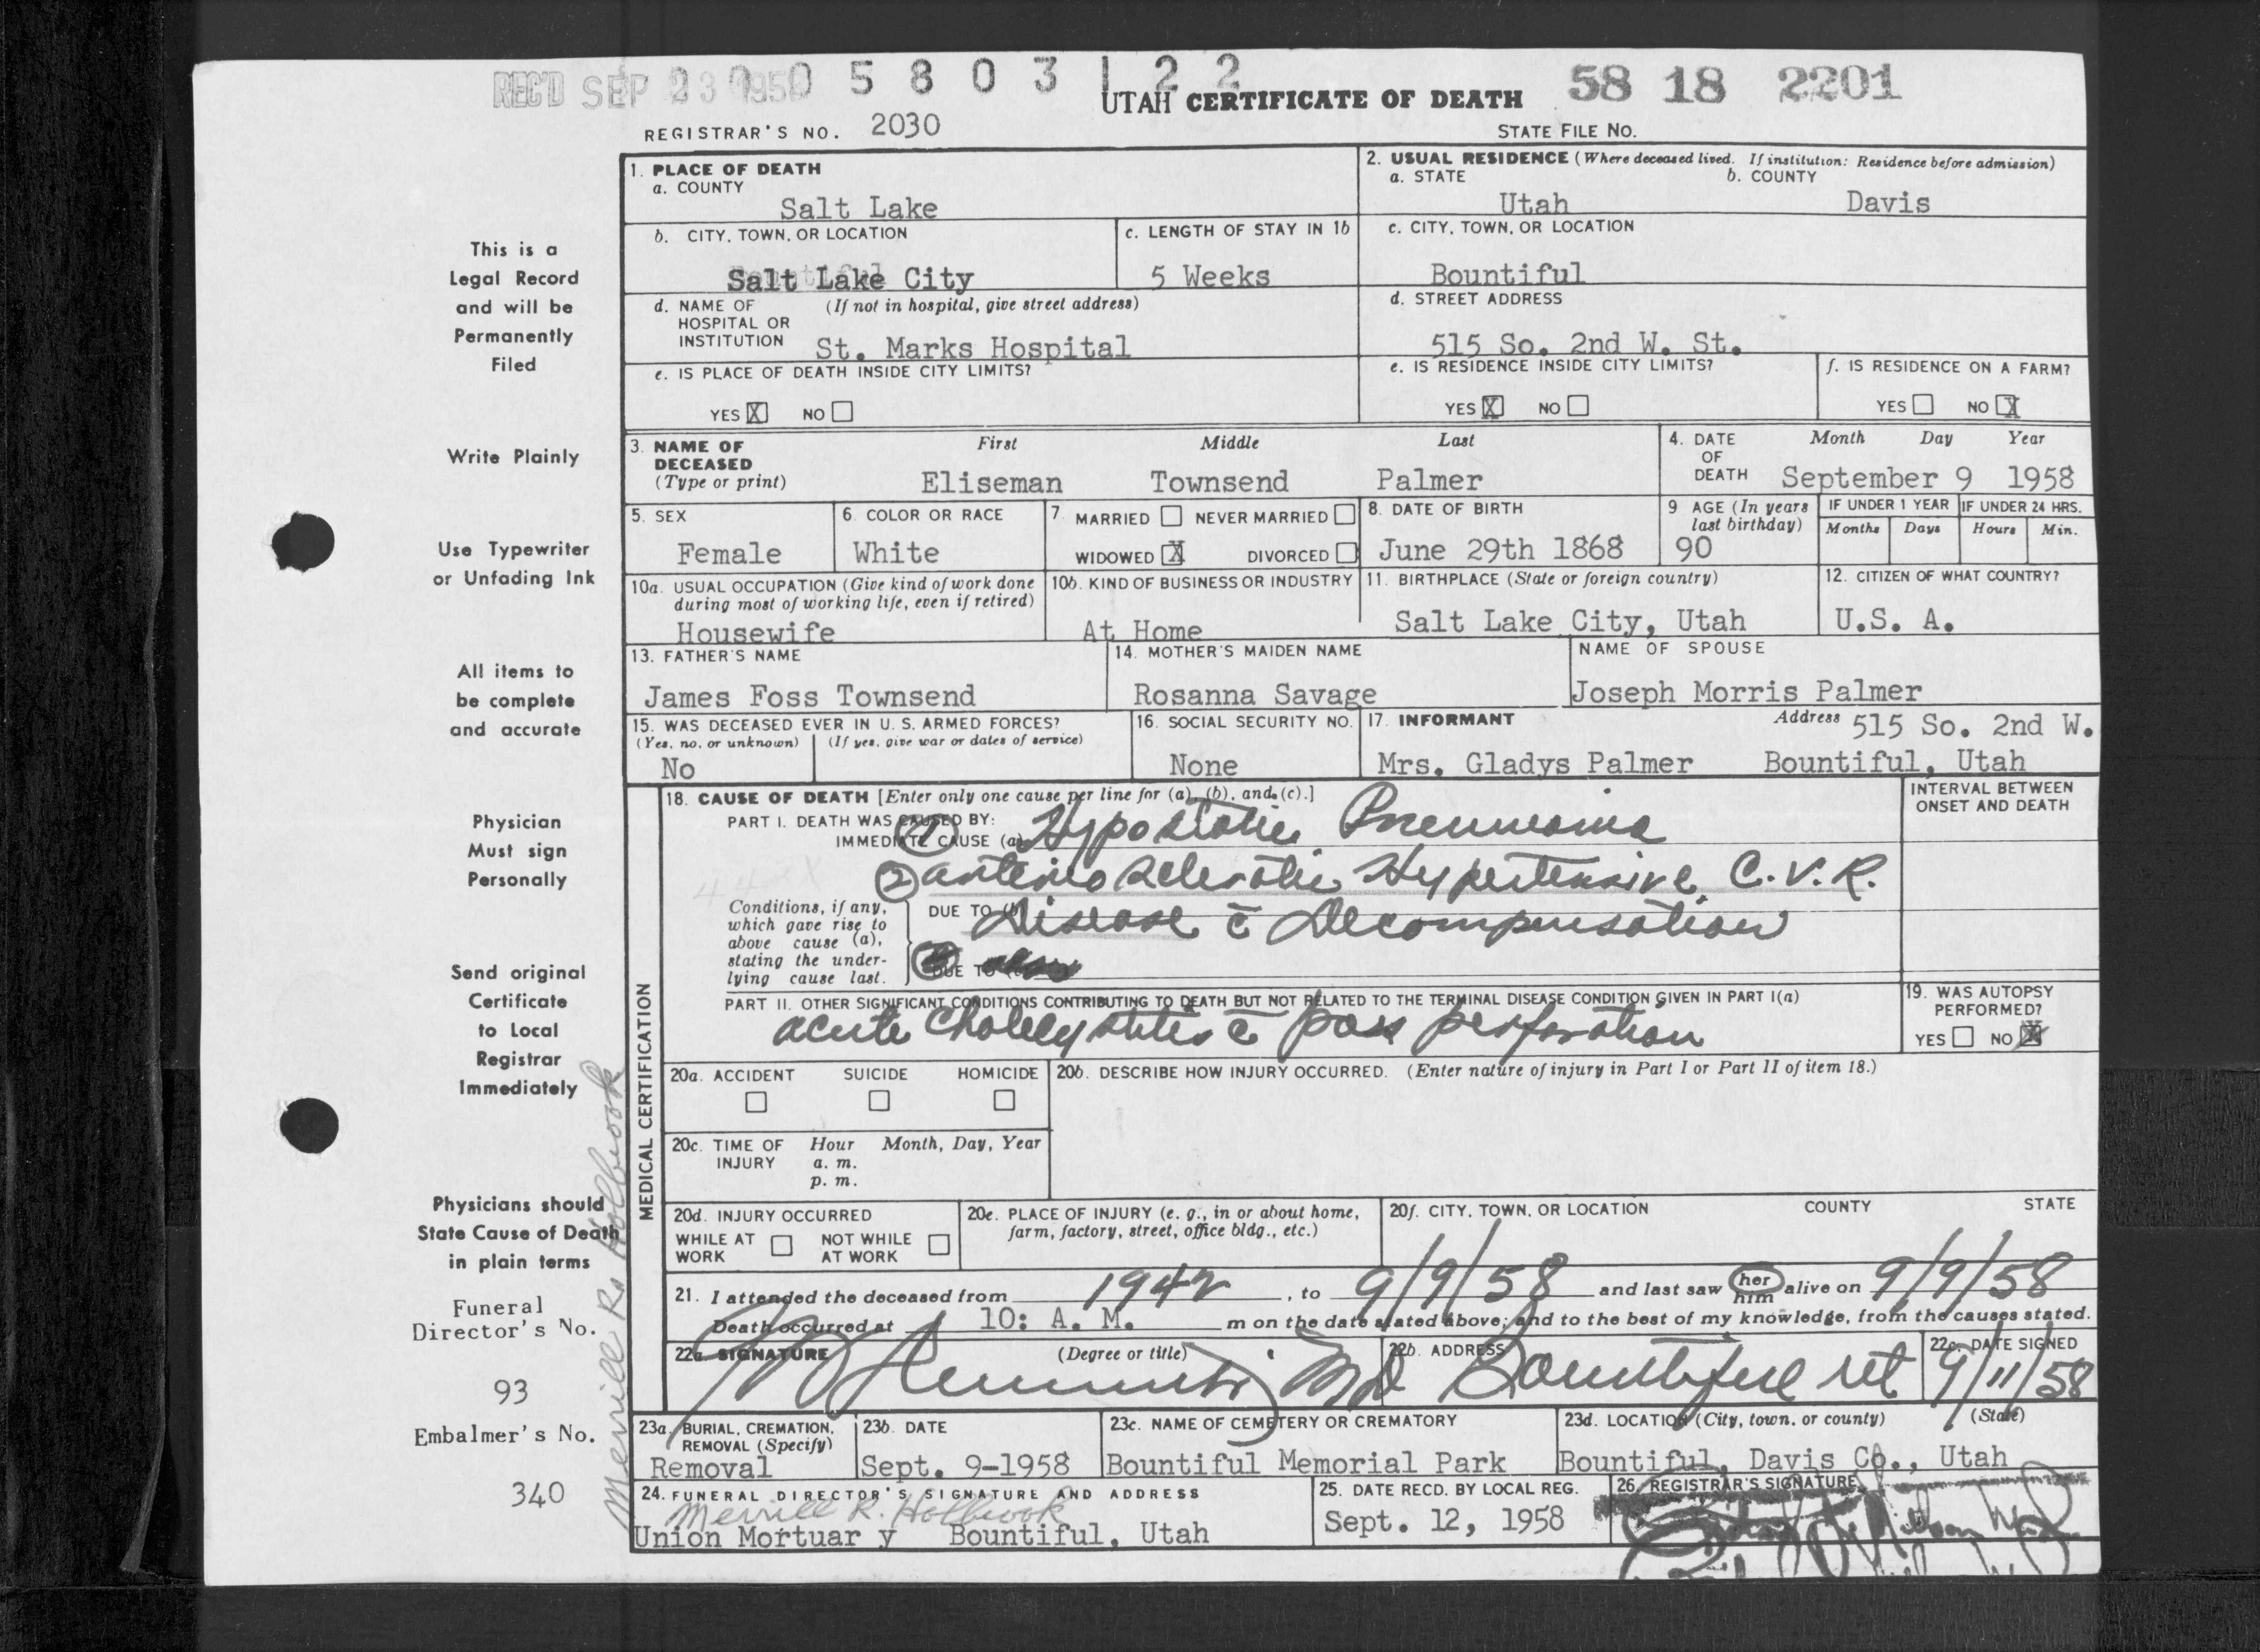 REC'D SEP 23 1958 0 5 8 0 3 1 2 2 58 18 2201
UTAH CERTIFICATE OF DEATH
REGISTRAR'S NO. 2030 STATE FILE NO.
1. PLACE OF DEATH
a. COUNTY
Salt Lake
2. USUAL RESIDENCE (Where deceased lived. If institution: Residence before admission)
a. STATE b. COUNTY
Utah Davis
b. CITY, TOWN, OR LOCATION
Salt Lake City
c. LENGTH OF STAY IN 1b
5 Weeks
c. CITY, TOWN, OR LOCATION
Bountiful
d. NAME OF (If not in hospital, give street address)
HOSPITAL OR
INSTITUTION St. Marks Hospital
d. STREET ADDRESS
515 So. 2nd W. St.
e. IS PLACE OF DEATH INSIDE CITY LIMITS?
YES X NO
e. IS RESIDENCE INSIDE CITY LIMITS?
YES X NO
f. IS RESIDENCE ON A FARM?
YES NO X
3. NAME OF DECEASED (Type or print)
First Middle Last
Eliseman Townsend Palmer
4. DATE OF DEATH
Month Day Year
September 9 1958
5. SEX
Female
6. COLOR OR RACE
White
7. MARRIED NEVER MARRIED
WIDOWED X DIVORCED
8. DATE OF BIRTH
June 29th 1868
9 AGE (In years last birthday)
90
IF UNDER 1 YEAR IF UNDER 24 HRS.
Months Days Hours Min.
10a. USUAL OCCUPATION (Give kind of work done
during most of working life, even if retired)
Housewife
10b. KIND OF BUSINESS OR INDUSTRY
At Home
11. BIRTHPLACE (State or foreign country)
Salt Lake City, Utah
12. CITIZEN OF WHAT COUNTRY?
U.S. A.
13. FATHER'S NAME
James Foss Townsend
14. MOTHER'S MAIDEN NAME
Rosanna Savage
NAME OF SPOUSE
Joseph Morris Palmer
15. WAS DECEASED EVER IN U. S. ARMED FORCES?
(Yes, no, or unknown) (If yes, give war or dates of service)
No
16. SOCIAL SECURITY NO.
None
17. INFORMANT Address 515 So. 2nd W.
Mrs. Gladys Palmer Bountiful, Utah
18. CAUSE OF DEATH [Enter only one cause per line for (a), (b), and (c).]
INTERVAL BETWEEN
ONSET AND DEATH
PART I. DEATH WAS CAUSED BY:
IMMEDIATE CAUSE (a) (1) Hypostatic Pneumonia
(2) arterio sclerotic Hypertensive C.V.R.
DUE TO (b) Disease c̄ Decompensation
Conditions, if any,
which gave rise to
above cause (a),
stating the under-
lying cause last.
DUE TO (c)
PART II. OTHER SIGNIFICANT CONDITIONS CONTRIBUTING TO DEATH BUT NOT RELATED TO THE TERMINAL DISEASE CONDITION GIVEN IN PART I(a)
acute Cholecystitis c̄ poss perforation
19. WAS AUTOPSY
PERFORMED?
YES NO X
MEDICAL CERTIFICATION
20a. ACCIDENT SUICIDE HOMICIDE
20b. DESCRIBE HOW INJURY OCCURRED. (Enter nature of injury in Part I or Part II of item 18.)
20c. TIME OF Hour Month, Day, Year
INJURY a. m.
p. m.
20d. INJURY OCCURRED
WHILE AT WORK NOT WHILE AT WORK
20e. PLACE OF INJURY (e. g., in or about home,
farm, factory, street, office bldg., etc.)
20f. CITY, TOWN, OR LOCATION COUNTY STATE
21. I attended the deceased from 1942, to 9/9/58 and last saw her him alive on 9/9/58
Death occurred at 10: A. M. m on the date stated above; and to the best of my knowledge, from the causes stated.
22a. SIGNATURE (Degree or title)
MD
22b. ADDRESS
Bountiful Ut
22c. DATE SIGNED
9/11/58
23a. BURIAL, CREMATION,
REMOVAL (Specify)
Removal
23b. DATE
Sept. 9-1958
23c. NAME OF CEMETERY OR CREMATORY
Bountiful Memorial Park
23d. LOCATION (City, town, or county) (State)
Bountiful, Davis Co., Utah
24. FUNERAL DIRECTOR'S SIGNATURE AND ADDRESS
Merrill R. Holbrook
Union Mortuar y Bountiful, Utah
25. DATE RECD. BY LOCAL REG.
Sept. 12, 1958
26. REGISTRAR'S SIGNATURE
This is a
Legal Record
and will be
Permanently
Filed
Write Plainly
Use Typewriter
or Unfading Ink
All items to
be complete
and accurate
Physician
Must sign
Personally
Send original
Certificate
to Local
Registrar
Immediately
Physicians should
State Cause of Death
in plain terms
Funeral
Director's No.
93
Embalmer's No.
340
Merrill R. Holbrook